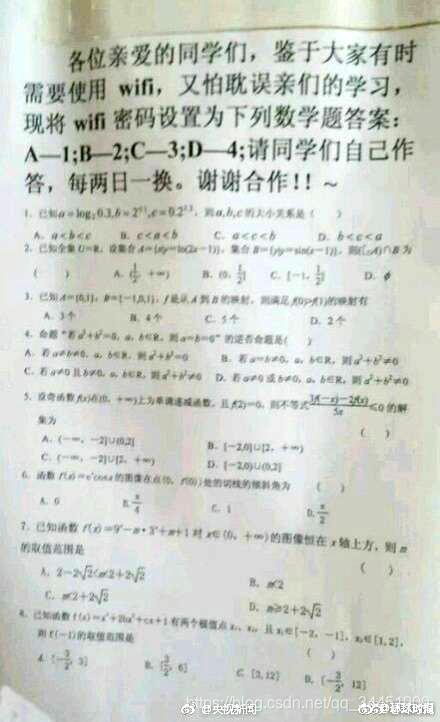 各位亲爱的同学们，鉴于大家有时
需要使用 wifi，又怕耽误亲们的学习，
现将 wifi 密码设置为下列数学题答案：
A—1;B—2;C—3;D—4;请同学们自己作
答，每两日一换。谢谢合作！！～
1. 已知a=log₂0.3,b=2⁰·¹,c=0.2²·³，则a,b,c的大小关系是（ ）
A. a<b<c B. c<a<b C. a<c<b D. b<c<a
2. 已知全集U=R，设集合A={x|y=ln(2x-1)}，集合B={y|y=sin(x-1)}，则(∁ᵤA)∩B为
（ ） A. (1/2, +∞) B. (0, 1/2] C. [-1, 1/2] D. ϕ
3. 已知A={0,1}，B={-1,0,1}，f是从A到B的映射，则满足f(0)>f(1)的映射有
A. 3个 B. 4个 C. 5个 D. 2个
4. 命题“若a²+b²=0，a，b∈R，则a=b=0”的逆否命题是( )
A. 若a≠b≠0，a，b∈R，则a²+b²=0 B. 若a=b≠0，a，b∈R，则a²+b²≠0
C. 若a≠0且b≠0，a，b∈R，则a²+b²≠0 D. 若a≠0或b≠0，a，b∈R，则a²+b²≠0
5. 设奇函数f(x)在(0，+∞)上为单调递减函数，且f(2)=0，则不等式 3f(-x)-2f(x)/5x ≤0的解
集为 （ ）
A. (-∞，-2]∪(0,2] B. [-2,0]∪[2，+∞)
C. (-∞，-2]∪[2，+∞) D. [-2,0)∪(0,2]
6. 函数f(x)=eˣcosx的图像在点(0，f(0))处的切线的倾斜角为 （ ）
A. 0 B. π/4 C. 1 D. π/2
7. 已知函数 f(x)=9ˣ-m·3ˣ+m+1对x∈(0，+∞)的图像恒在x轴上方，则m
的取值范围是 （ ）
A. 2-2√2<m<2+2√2 B. m<2
C. m<2+2√2 D. m≥2+2√2
8. 已知函数f(x)=x³+2bx²+cx+1有两个极值点x₁、x₂，且x₁∈[-2，-1]，x₂∈[1,2]，
则f(-1)的取值范围是 （ ）
A. [-3/2, 3] B. [3/2, 6] C. [3,12] D. [-3/2, 12]
@央视新闻
@环球时报